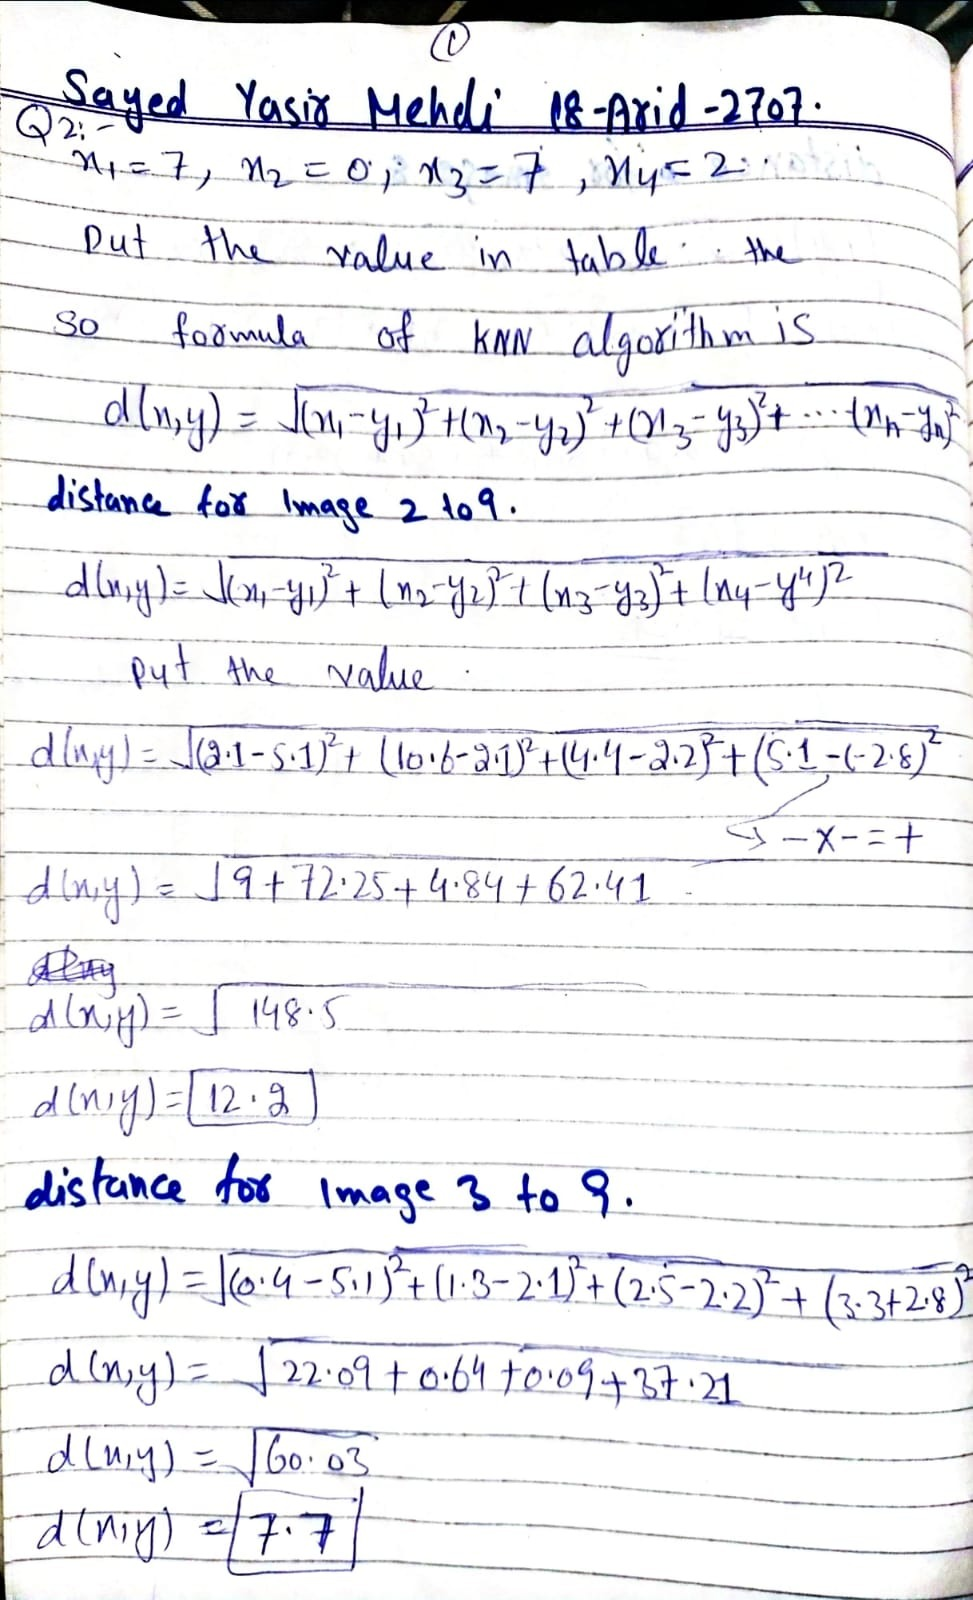 ①
Sayed Yasir Mehdi 18-Arid-2707.
Q2:-
x1 = 7, x2 = 0, x3 = 7, x4 = 2
Put the value in table. the
so formula of KNN algorithm is
d(x,y) = √(x₁-y₁)²+(x₂-y₂)²+(x₃-y₃)²+ ... +(xₙ-yₙ)²
distance for Image 2 to 9.
d(x,y) = √(x₁-y₁)²+(x₂-y₂)²+(x₃-y₃)²+(x4-y⁴)²
put the value
d(x,y) = √(2.1-5.1)²+(10.6-2.1)²+(4.4-2.2)²+(5.1-(-2.8)²
↳ -x-=+
d(x,y) = √9+72.25+4.84+62.41
d(x,y) = √148.5
d(x,y) = 12.2
distance for Image 3 to 9.
d(x,y) = √(0.4-5.1)²+(1.3-2.1)²+(2.5-2.2)²+(3.3+2.8)²
d(x,y) = √22.09+0.64+0.09+37.21
d(x,y) = √60.03
d(x,y) = 7.7